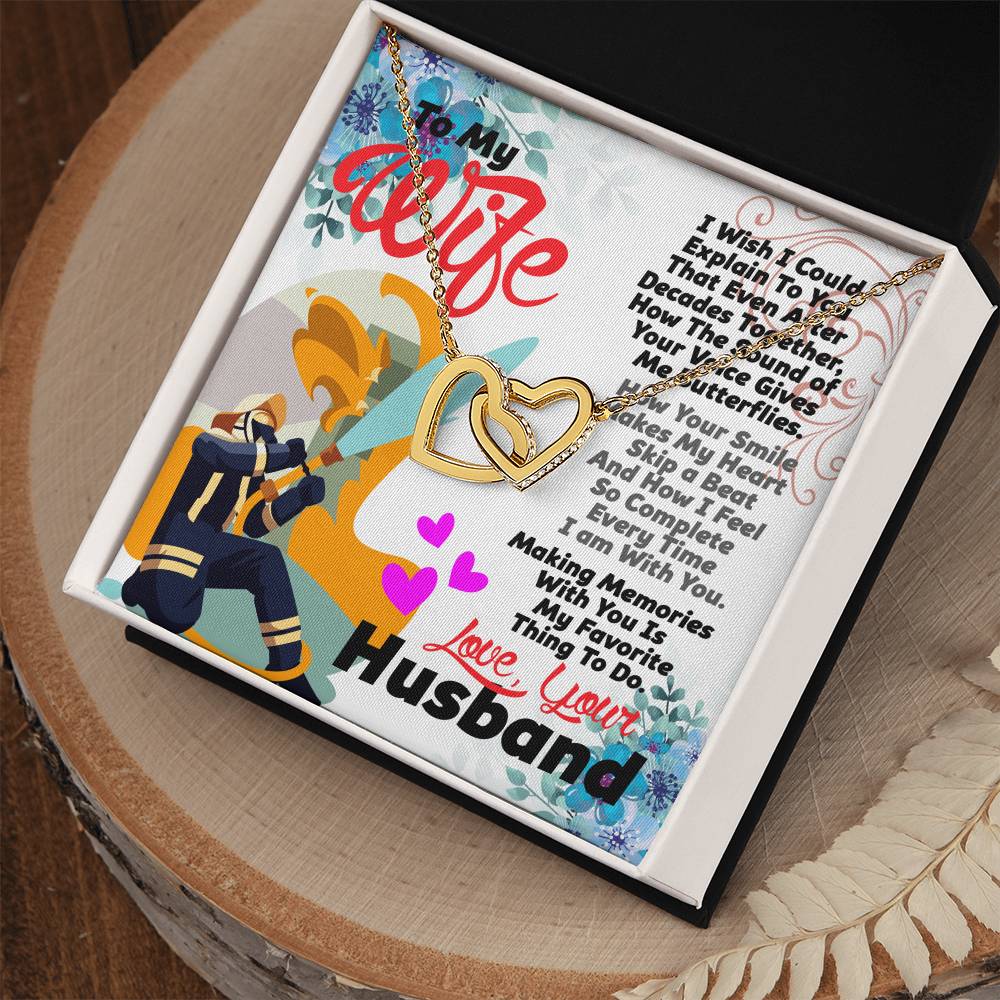 To My
Wife
I Wish I Could
Explain To You
That Even After
Decades Together,
How The Sound of
Your Voice Gives
Me Butterflies.
How Your Smile
Makes My Heart
Skip a Beat
And How I Feel
So Complete
Every Time
I am With You.
Making Memories
With You Is
My Favorite
Thing To Do.
Love, Your
Husband